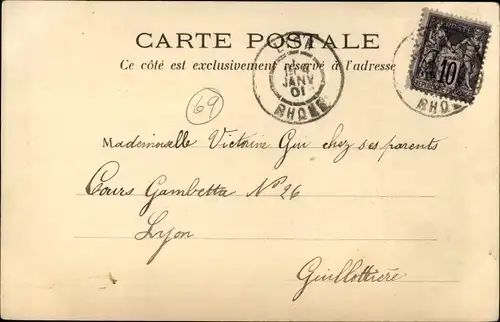 CARTE POSTALE
Ce côté est exclusivement réservé à l'adresse
JANV
01
RHONE
RHONE
10
69
Mademoiselle Victorine Gui chez ses parents
Cours Gambetta No 26
Lyon
Guillottière